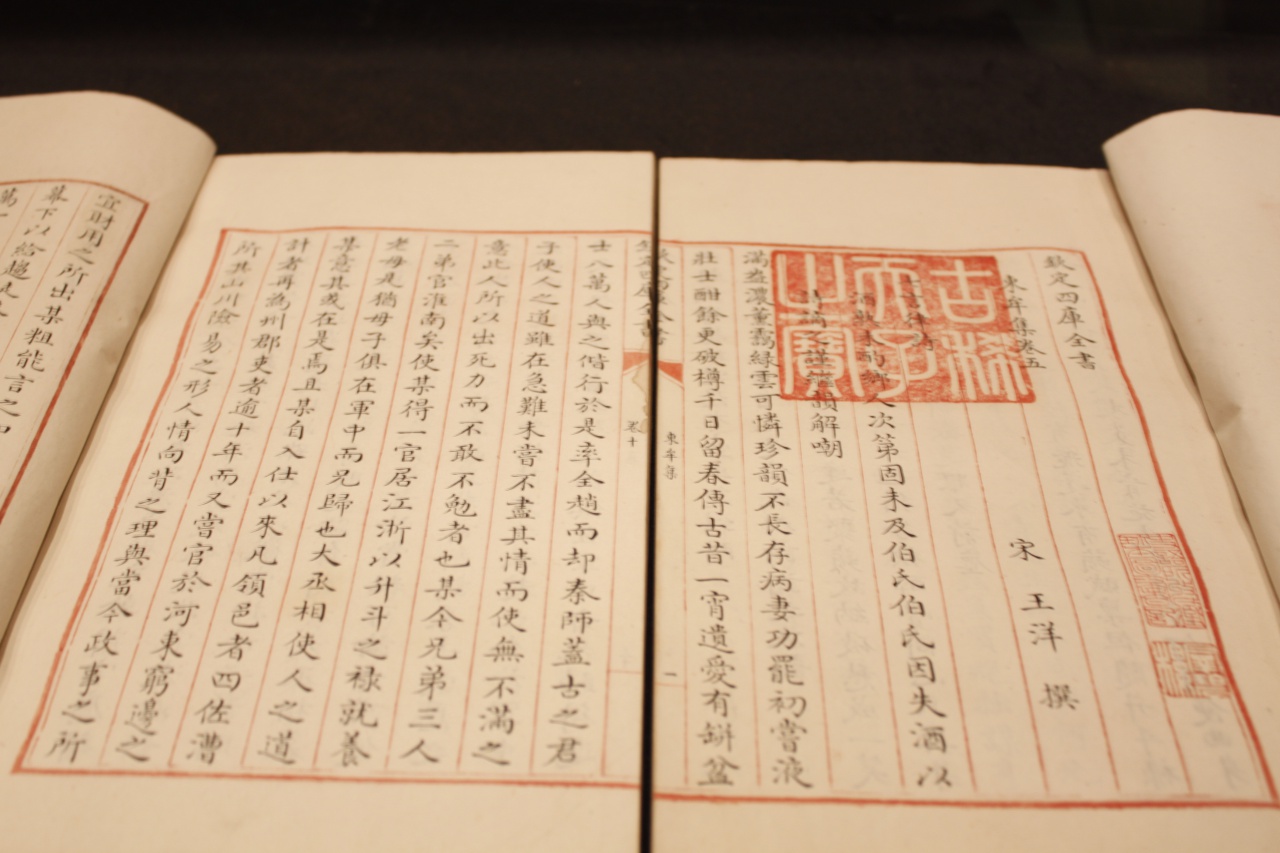 欽定四庫全書
東牟集卷五
宋 王洋 撰
七言律詩
酒熟未酌鄰人次第固未及伯氏伯氏因失酒以
詩解嘲
滿盎濃薰靄綠雲可憐珍韻不長存病妻功罷初嘗液
壯士酣餘更破樽千日留春傳古昔一宵遺愛有缾盆
古稀天子之寶
東牟集
一
卷十
士八萬人與之偕行於是率全趙而却秦師蓋古之君
子使人之道雖在急難未嘗不盡其情而使無不滿之
意此人所以出死力而不敢不勉者也某今兄弟三人
二弟官淮南矣使某得一官居江浙以升斗之祿就養
老母是猶母子俱在軍中而兄歸也大丞相使人之道
某意其或在是焉且某自入仕以來凡領邑者四佐漕
計者再為州郡吏者逾十年而又嘗官於河東窮邊之
所其山川險易之形人情向背之理與當今政事之所
宜財用之所出某粗能言之
幕下以給趨
萬